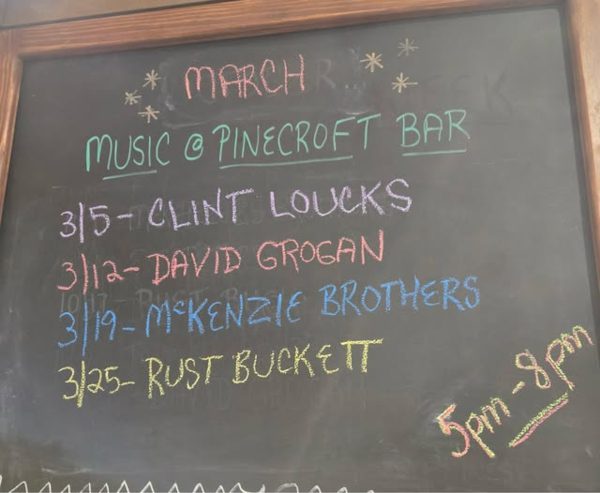 MARCH
MUSIC @ PINECROFT BAR
3/5- CLINT LOUCKS
3/12- DAVID GROGAN
3/19- McKENZIE BROTHERS
3/25- RUST BUCKETT
5pm-8pm